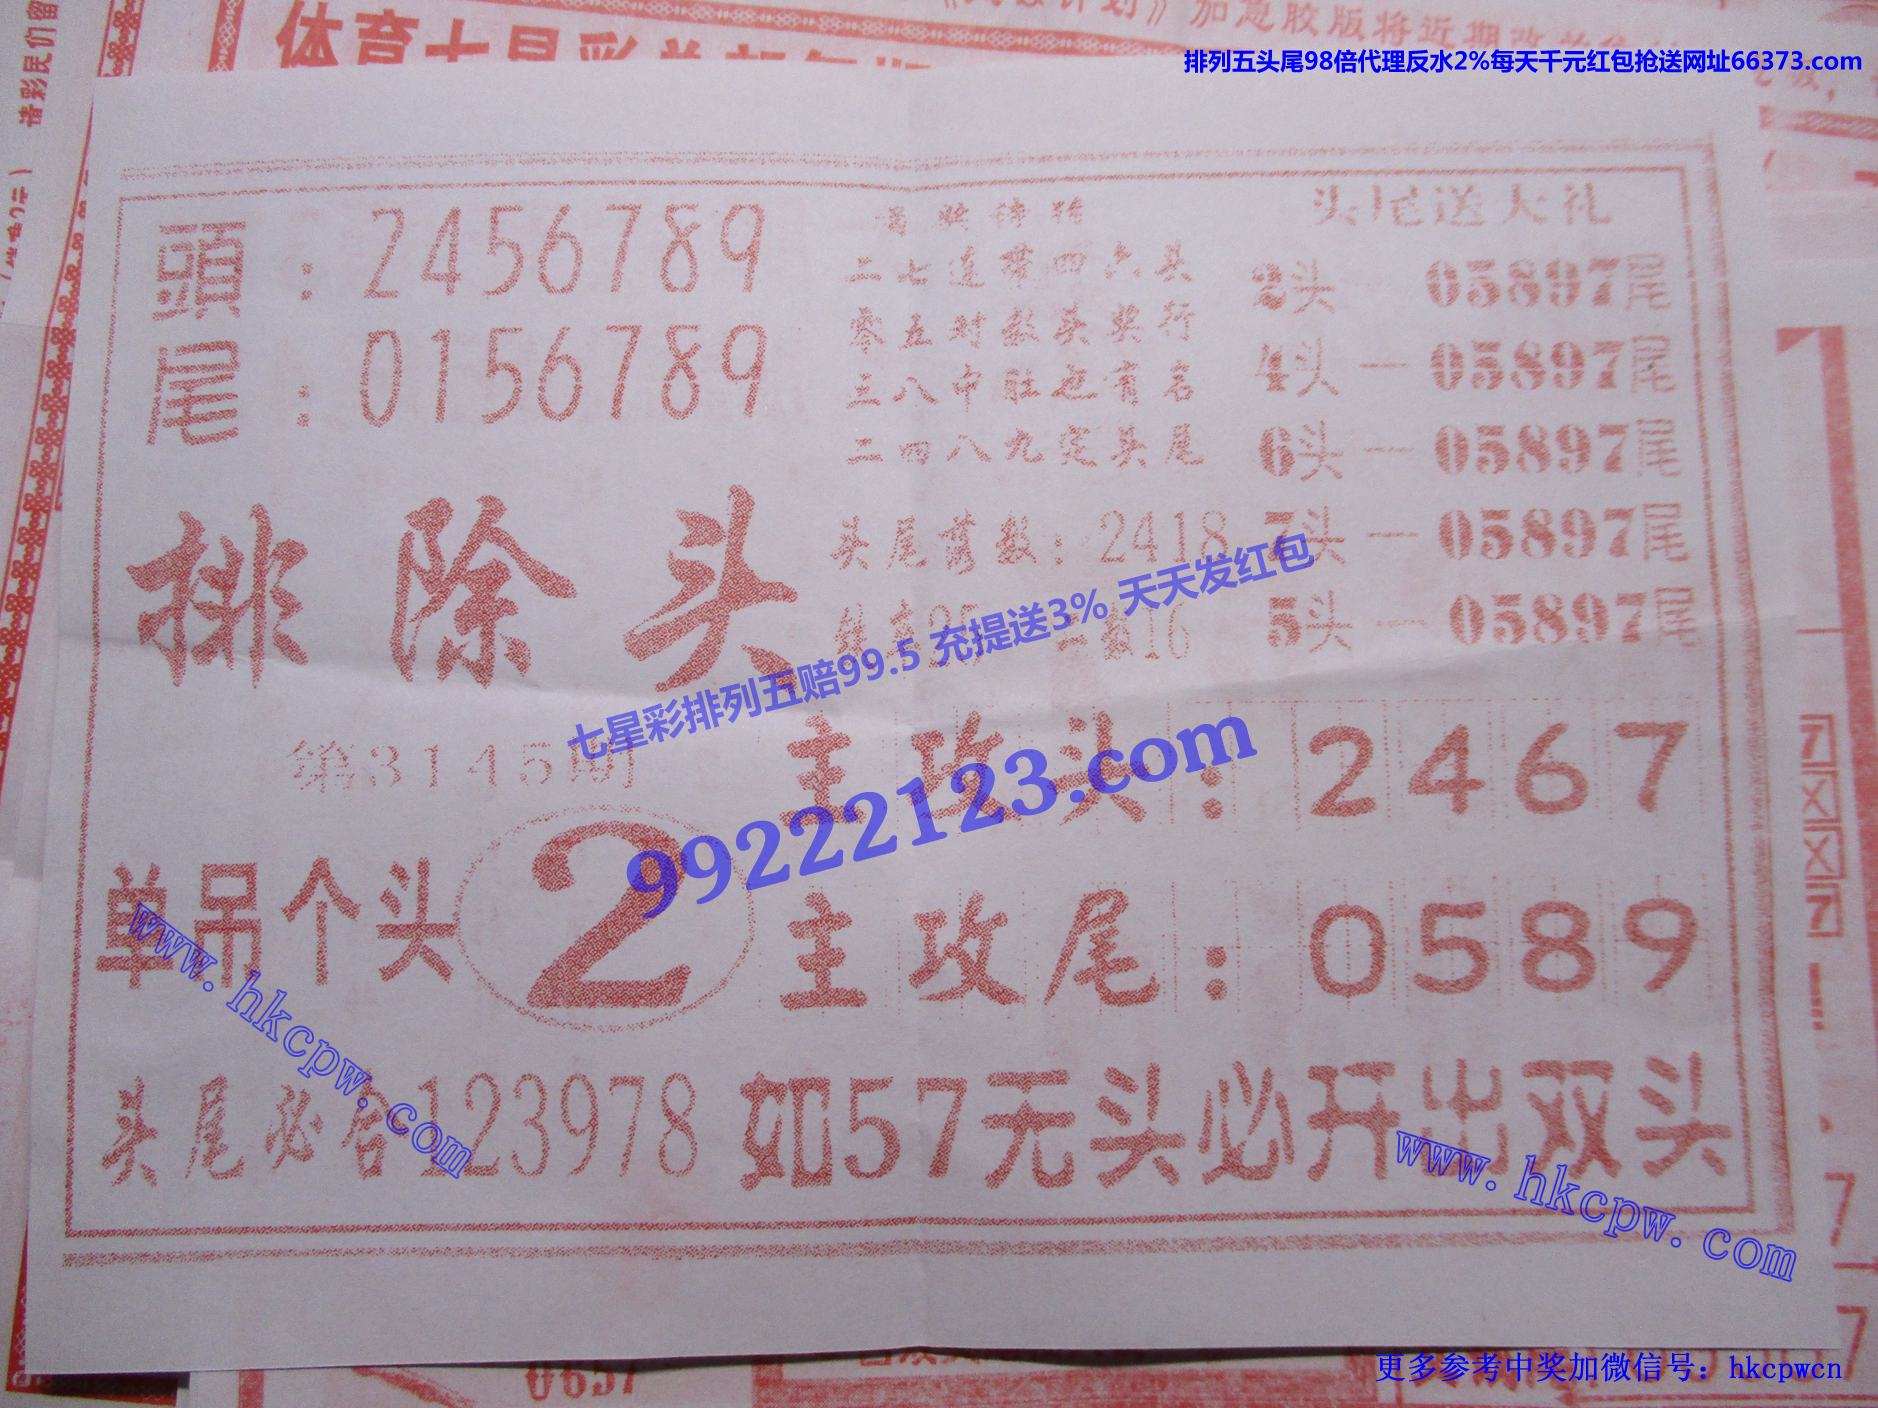 加急胶版将近期
体育七星彩
排列五头尾98倍代理反水2%每天千元红包抢送网址66373.com
請彩民们留
頭：2456789
尾：0156789
二七连带四六头
零五对数头奖行
三八中肚也有名
二四八九定头尾
头尾送大礼
2头一05897尾
4头一05897尾
6头一05897尾
7头一05897尾
5头一05897尾
头尾荐数：2418
16
排除头
第3145期
七星彩排列五赔99.5 充提送3% 天天发红包
99222123.com
主攻头：2467
单吊个头 2
主攻尾：0589
www.hkcpw.com
头尾必合123978 如57无头必开出双头
www.hkcpw.com
0657
更多参考中奖加微信号：hkcpwcn